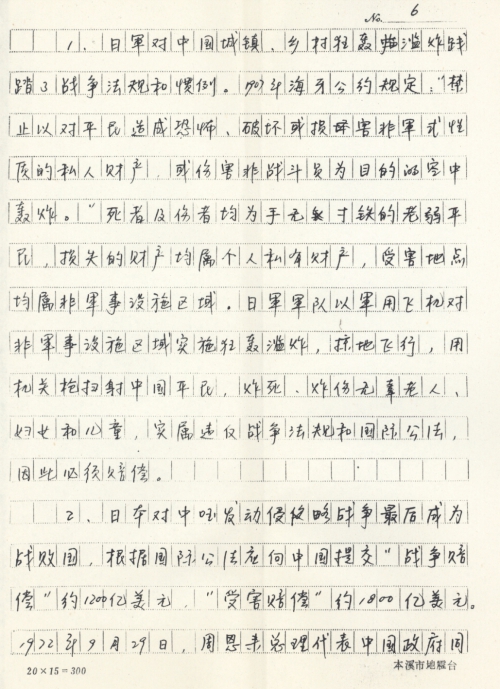 No. 6
1、日军对中国城镇、乡村狂轰滥炸践
踏了战争法规和惯例。1907年海牙公约规定:“禁
止以对平民造成恐怖、破坏或损害非军事性
质的私人财产,或伤害非战斗员为目的的空中
轰炸。”死者及伤者均为手无寸铁的老弱平
民,损失的财产均属个人私有财产,受害地点
均属非军事设施区域。日军军队以军用飞机对
非军事设施区域实施狂轰滥炸,掠地飞行,用
机关枪扫射中国平民,炸死、炸伤无辜老人、
妇女和儿童,实属违反战争法规和国际公法,
因此必须赔偿。
2、日本对中国发动侵略战争最后成为
战败国,根据国际公法应向中国提交“战争赔
偿”约1200亿美元,“受害赔偿”约1800亿美元。
1972年9月29日,周恩来总理代表中国政府同
20×15=300
本溪市地震台